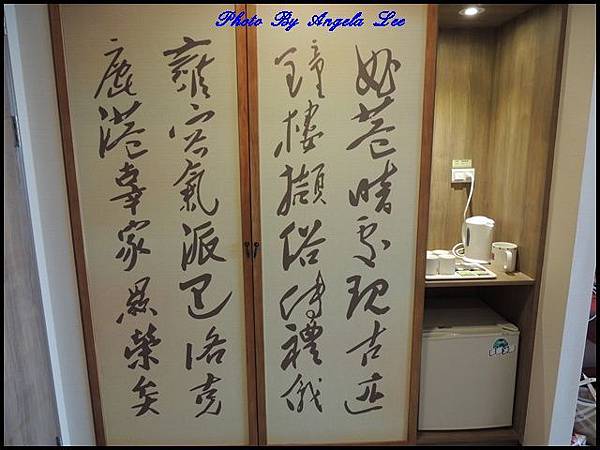 Photo By Angela Lee
巷晴現古迹
鐘樓擷俗傳禮儀
雍容氣派巴洛克
鹿港辜家顯榮矣